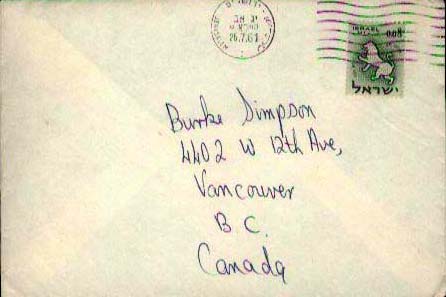 26.7.61
ISRAEL 0.08
ישראל
Burke Simpson
4402 W 12th Ave,
Vancouver
B C.
Canada